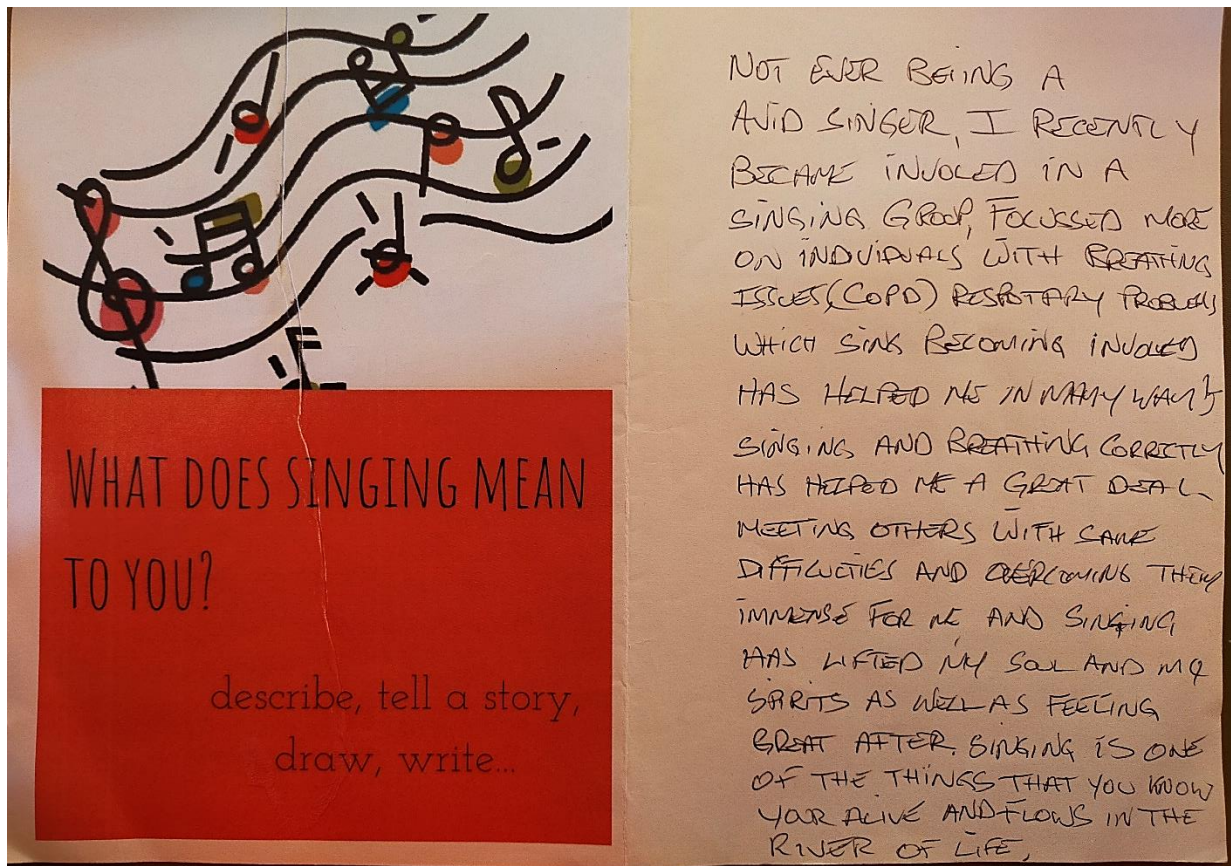 WHAT DOES SINGING MEAN
TO YOU?
describe, tell a story,
draw, write...
NOT EVER BEIING A
AVID SINGER, I RECENTLY
BECAME INVOLED IN A
SINGING GROUP, FOCUSSED MORE
ON INDIVIDUALS WITH BREATHING
ISSUES, (COPD) RESPOTARY PROBLEMS
WHICH SINS BECOMING INVOLVED
HAS HELPED ME IN MANY WAYS
SINGING AND BREATHING CORRECTLY
HAS HELPED ME A GREAT DEAL
MEETING OTHERS WITH SAME
DIFFICUCTIES AND OVERCOMING THEM
IMMENSE FOR ME AND SINGING
HAS LIFTED MY SOUL AND MY
SPIRITS AS WELL AS FEELING
GREAT AFTER. SINGING IS ONE
OF THE THINGS THAT YOU KNOW
YOUR ALIVE AND FLOWS IN THE
RIVER OF LIFE.